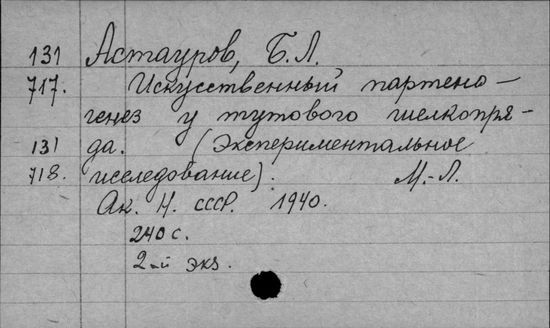 131 Астауров, Б.Л.
717. Искусственный партено-
генез у тутового шелкопря-
131 да. (Экспериментальное
718. исследование). М.-Л.
Ак. Н. СССР. 1940.
240 с.
2-й экз.